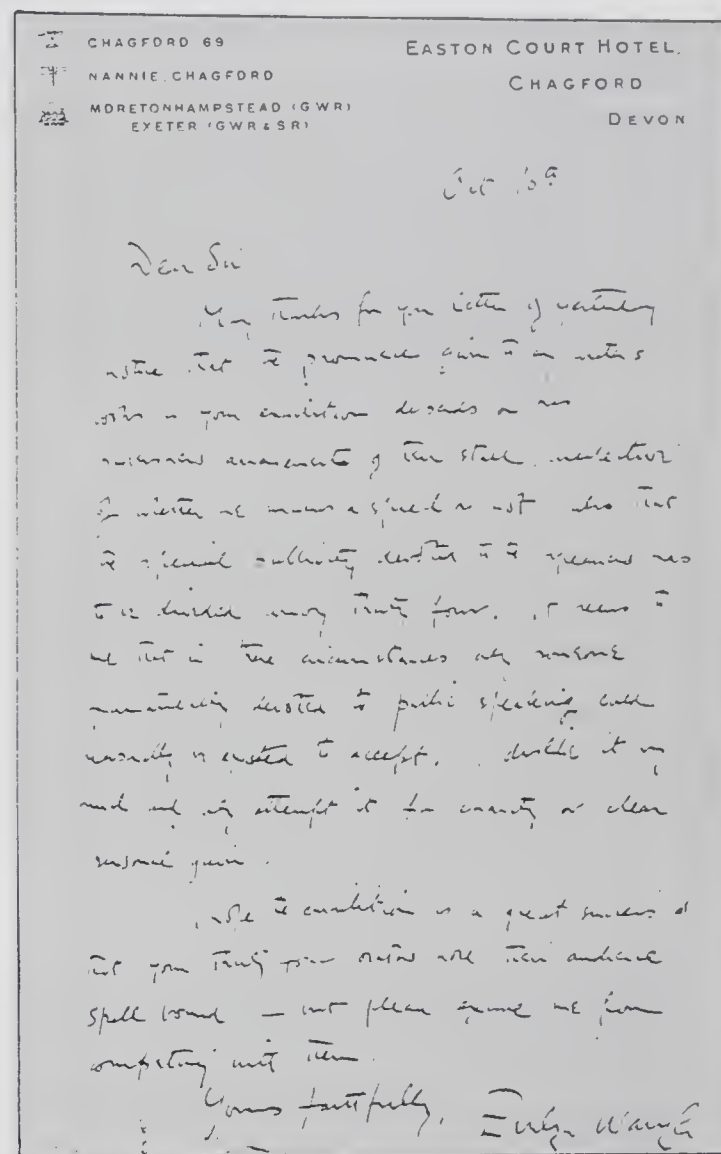 CHAGFORD 69
NANNIE, CHAGFORD
MORETONHAMPSTEAD (GWR)
EXETER (GWR & SR)
EASTON COURT HOTEL,
CHAGFORD
DEVON
Dear Sir
Many thanks for your letter of yesterday
notice that the promised gain to an author's
works in your exhibition depends on
arrangements of their stall, irrespective
of whether he makes a speech or not also that
the special publicity devoted to the speeches has
to be divided among thirty four. it seems to
me that in these circumstances only someone
devoted to public speaking could
reasonably be expected to accept. I dislike it very
much and only attempt it for charity or clear
personal gain.
I hope the exhibition is a great success &
that your thirty four orators hold their audience
spell bound — but please excuse me from
competing with them.
Yours faithfully,
Evelyn Waugh